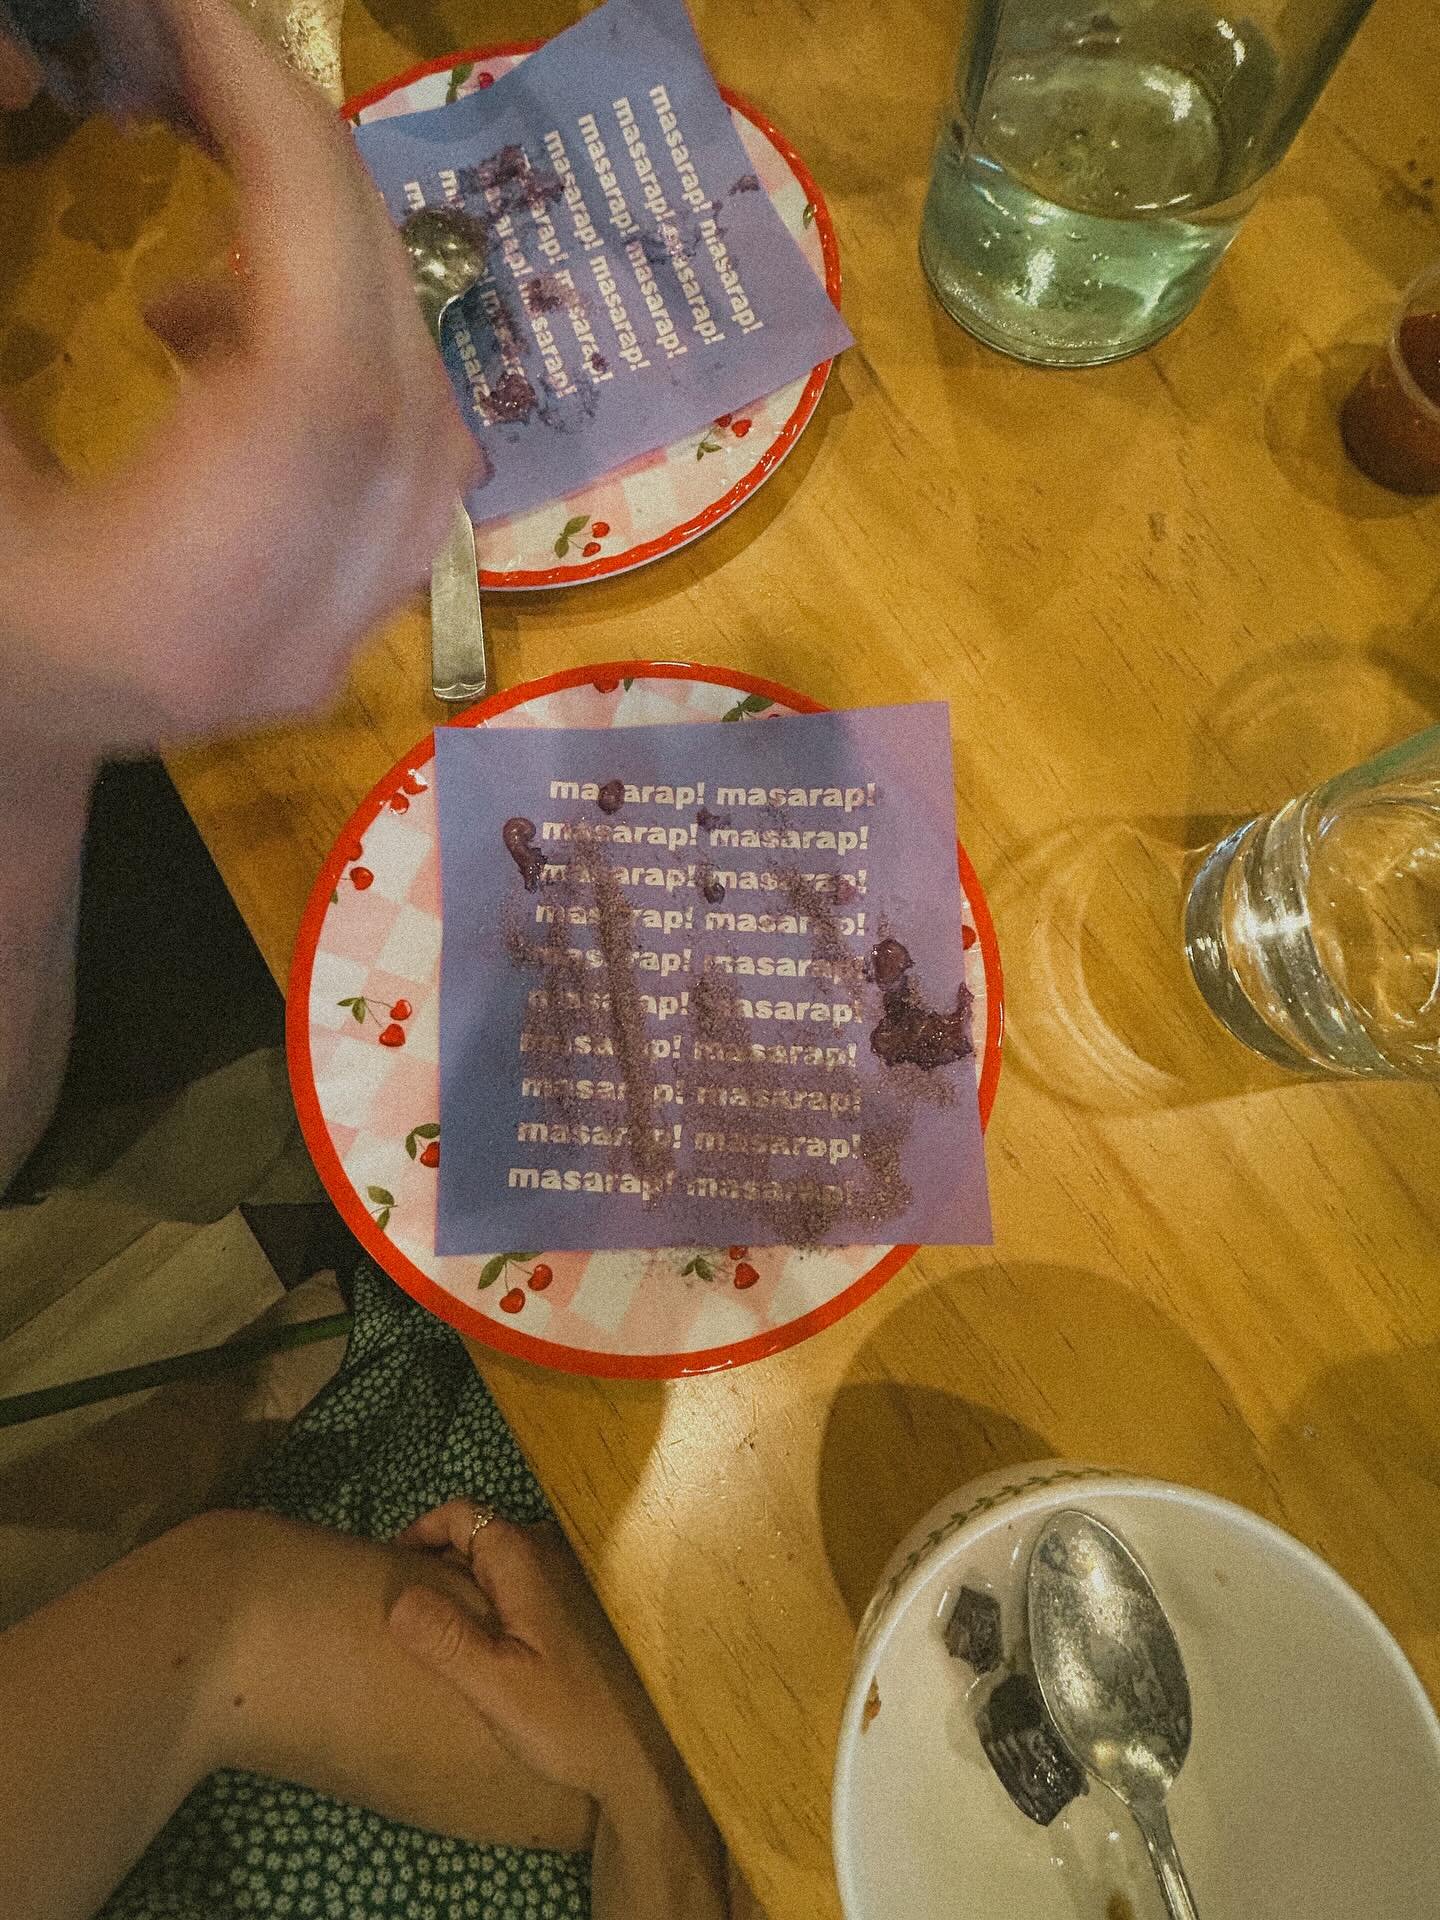 masarap! masarap!
masarap! masarap!
masarap! masarap!
masarap! masarap!
masarap! masarap!
masarap! masarap!
masarap!
masarap! masarap!
masarap! masarap!
masarap! masarap!
masarap! masarap!
masarap! masarap!
masarap! masarap!
masarap! masarap!
masarap! masarap!
masarap! masarap!
masarap! masarap!